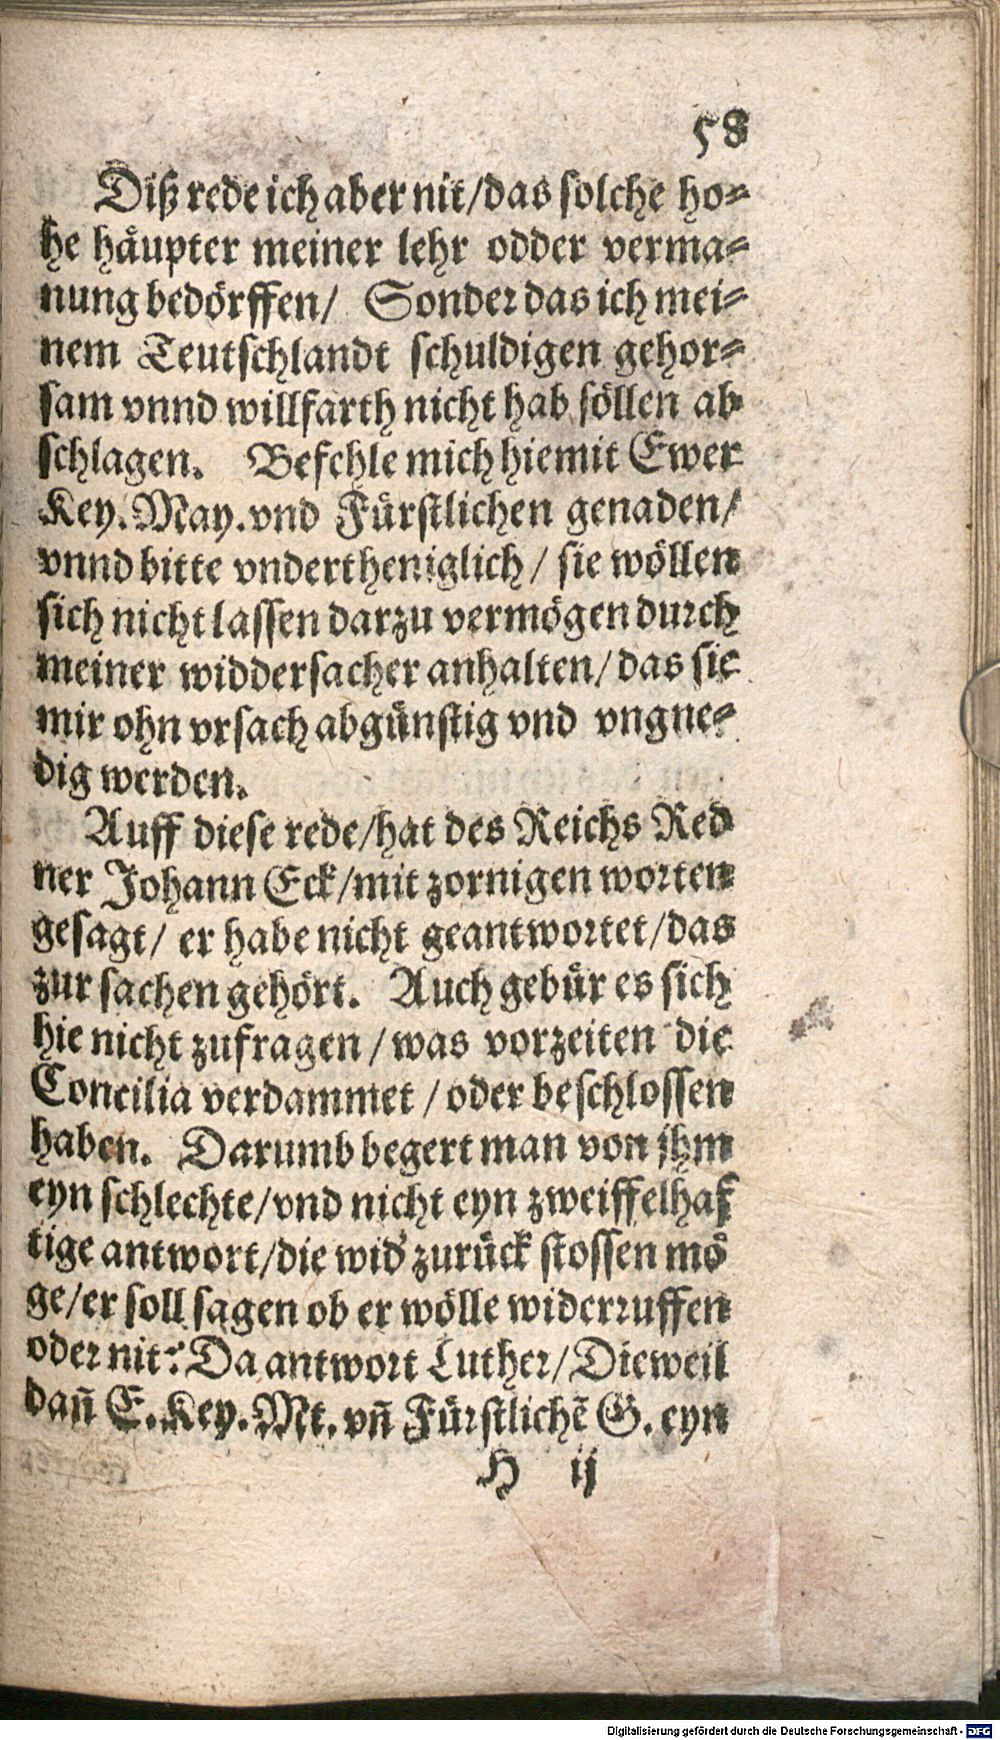 58
Diß rede ich aber nit/das solche ho-
he häupter meiner lehr odder verma-
nung bedörffen/ Sonder das ich mei-
nem Teutschlandt schuldigen gehor-
sam vnnd willfarth nicht hab söllen ab
schlagen. Befehle mich hiemit Ewer
Key. May. vnd Fürstlichen genaden/
vnnd bitte vndertheniglich/ sie wöllen
sich nicht lassen darzu vermögen durch
meiner widdersacher anhalten/das sie
mir ohn vrsach abgünstig vnd vngne-
dig werden.
Auff diese rede/hat des Reichs Red
ner Johann Eck/mit zornigen worten
gesagt/ er habe nicht geantwortet/das
zur sachen gehört. Auch gebür es sich
hie nicht zufragen/was vorzeiten die
Concilia verdammet/oder beschlossen
haben. Darumb begert man von jhm
eyn schlechte/vnd nicht eyn zweiffelhaf
tige antwort/die wid' zurück stossen mö
ge/er soll sagen ob er wölle widerruffen
oder nit: Da antwort Luther/Dieweil
dañ E. Key. Mt. vñ Fürstlichē G. eyn
H ij
Digitalisierung gefördert durch die Deutsche Forschungsgemeinschaft - DFG